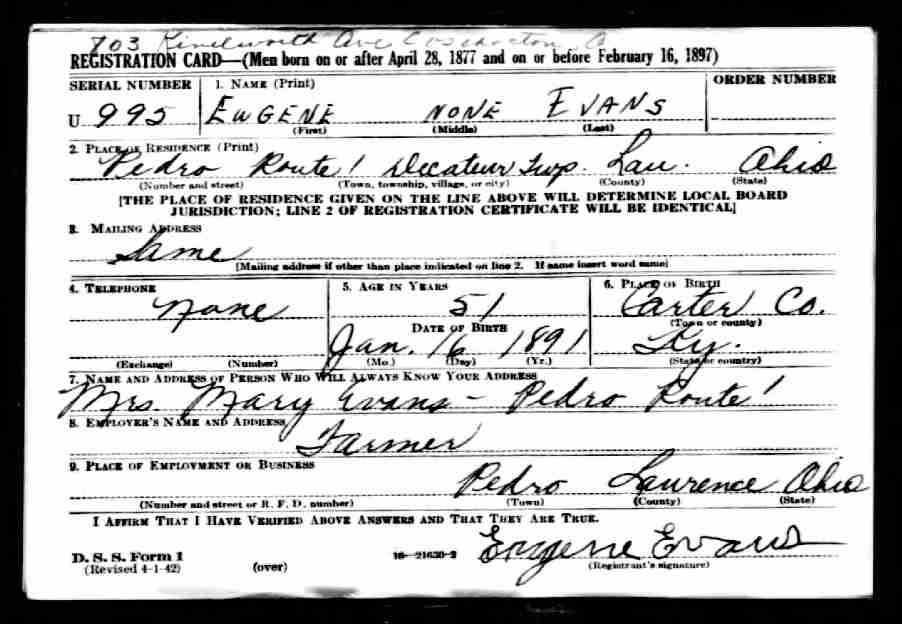 703 Kinilworth Ave Coshocton O
REGISTRATION CARD—(Men born on or after April 28, 1877 and on or before February 16, 1897)
SERIAL NUMBER 1. NAME (Print) ORDER NUMBER
U 995 EUGENE NONE EVANS
(First) (Middle) (Last)
2. PLACE OF RESIDENCE (Print)
Pedro Route 1 Decateur Twp. Law. Ohio
(Number and street) (Town, township, village, or city) (County) (State)
[THE PLACE OF RESIDENCE GIVEN ON THE LINE ABOVE WILL DETERMINE LOCAL BOARD
JURISDICTION; LINE 2 OF REGISTRATION CERTIFICATE WILL BE IDENTICAL]
3. MAILING ADDRESS
Same
[Mailing address if other than place indicated on line 2. If same insert word same]
4. TELEPHONE 5. AGE IN YEARS 6. PLACE OF BIRTH
None 51 Carter Co.
(Town or county)
DATE OF BIRTH
Jan. 16 1891 Ky.
(Exchange) (Number) (Mo.) (Day) (Yr.) (State or country)
7. NAME AND ADDRESS OF PERSON WHO WILL ALWAYS KNOW YOUR ADDRESS
Mrs. Mary Evans - Pedro Route 1
8. EMPLOYER'S NAME AND ADDRESS
Farmer
9. PLACE OF EMPLOYMENT OR BUSINESS
Pedro Lawrence Ohio
(Number and street or R. F. D. number) (Town) (County) (State)
I AFFIRM THAT I HAVE VERIFIED ABOVE ANSWERS AND THAT THEY ARE TRUE.
D. S. S. Form 1 16—21630-2 Eugene Evans
(Revised 4-1-42) (over) (Registrant's signature)